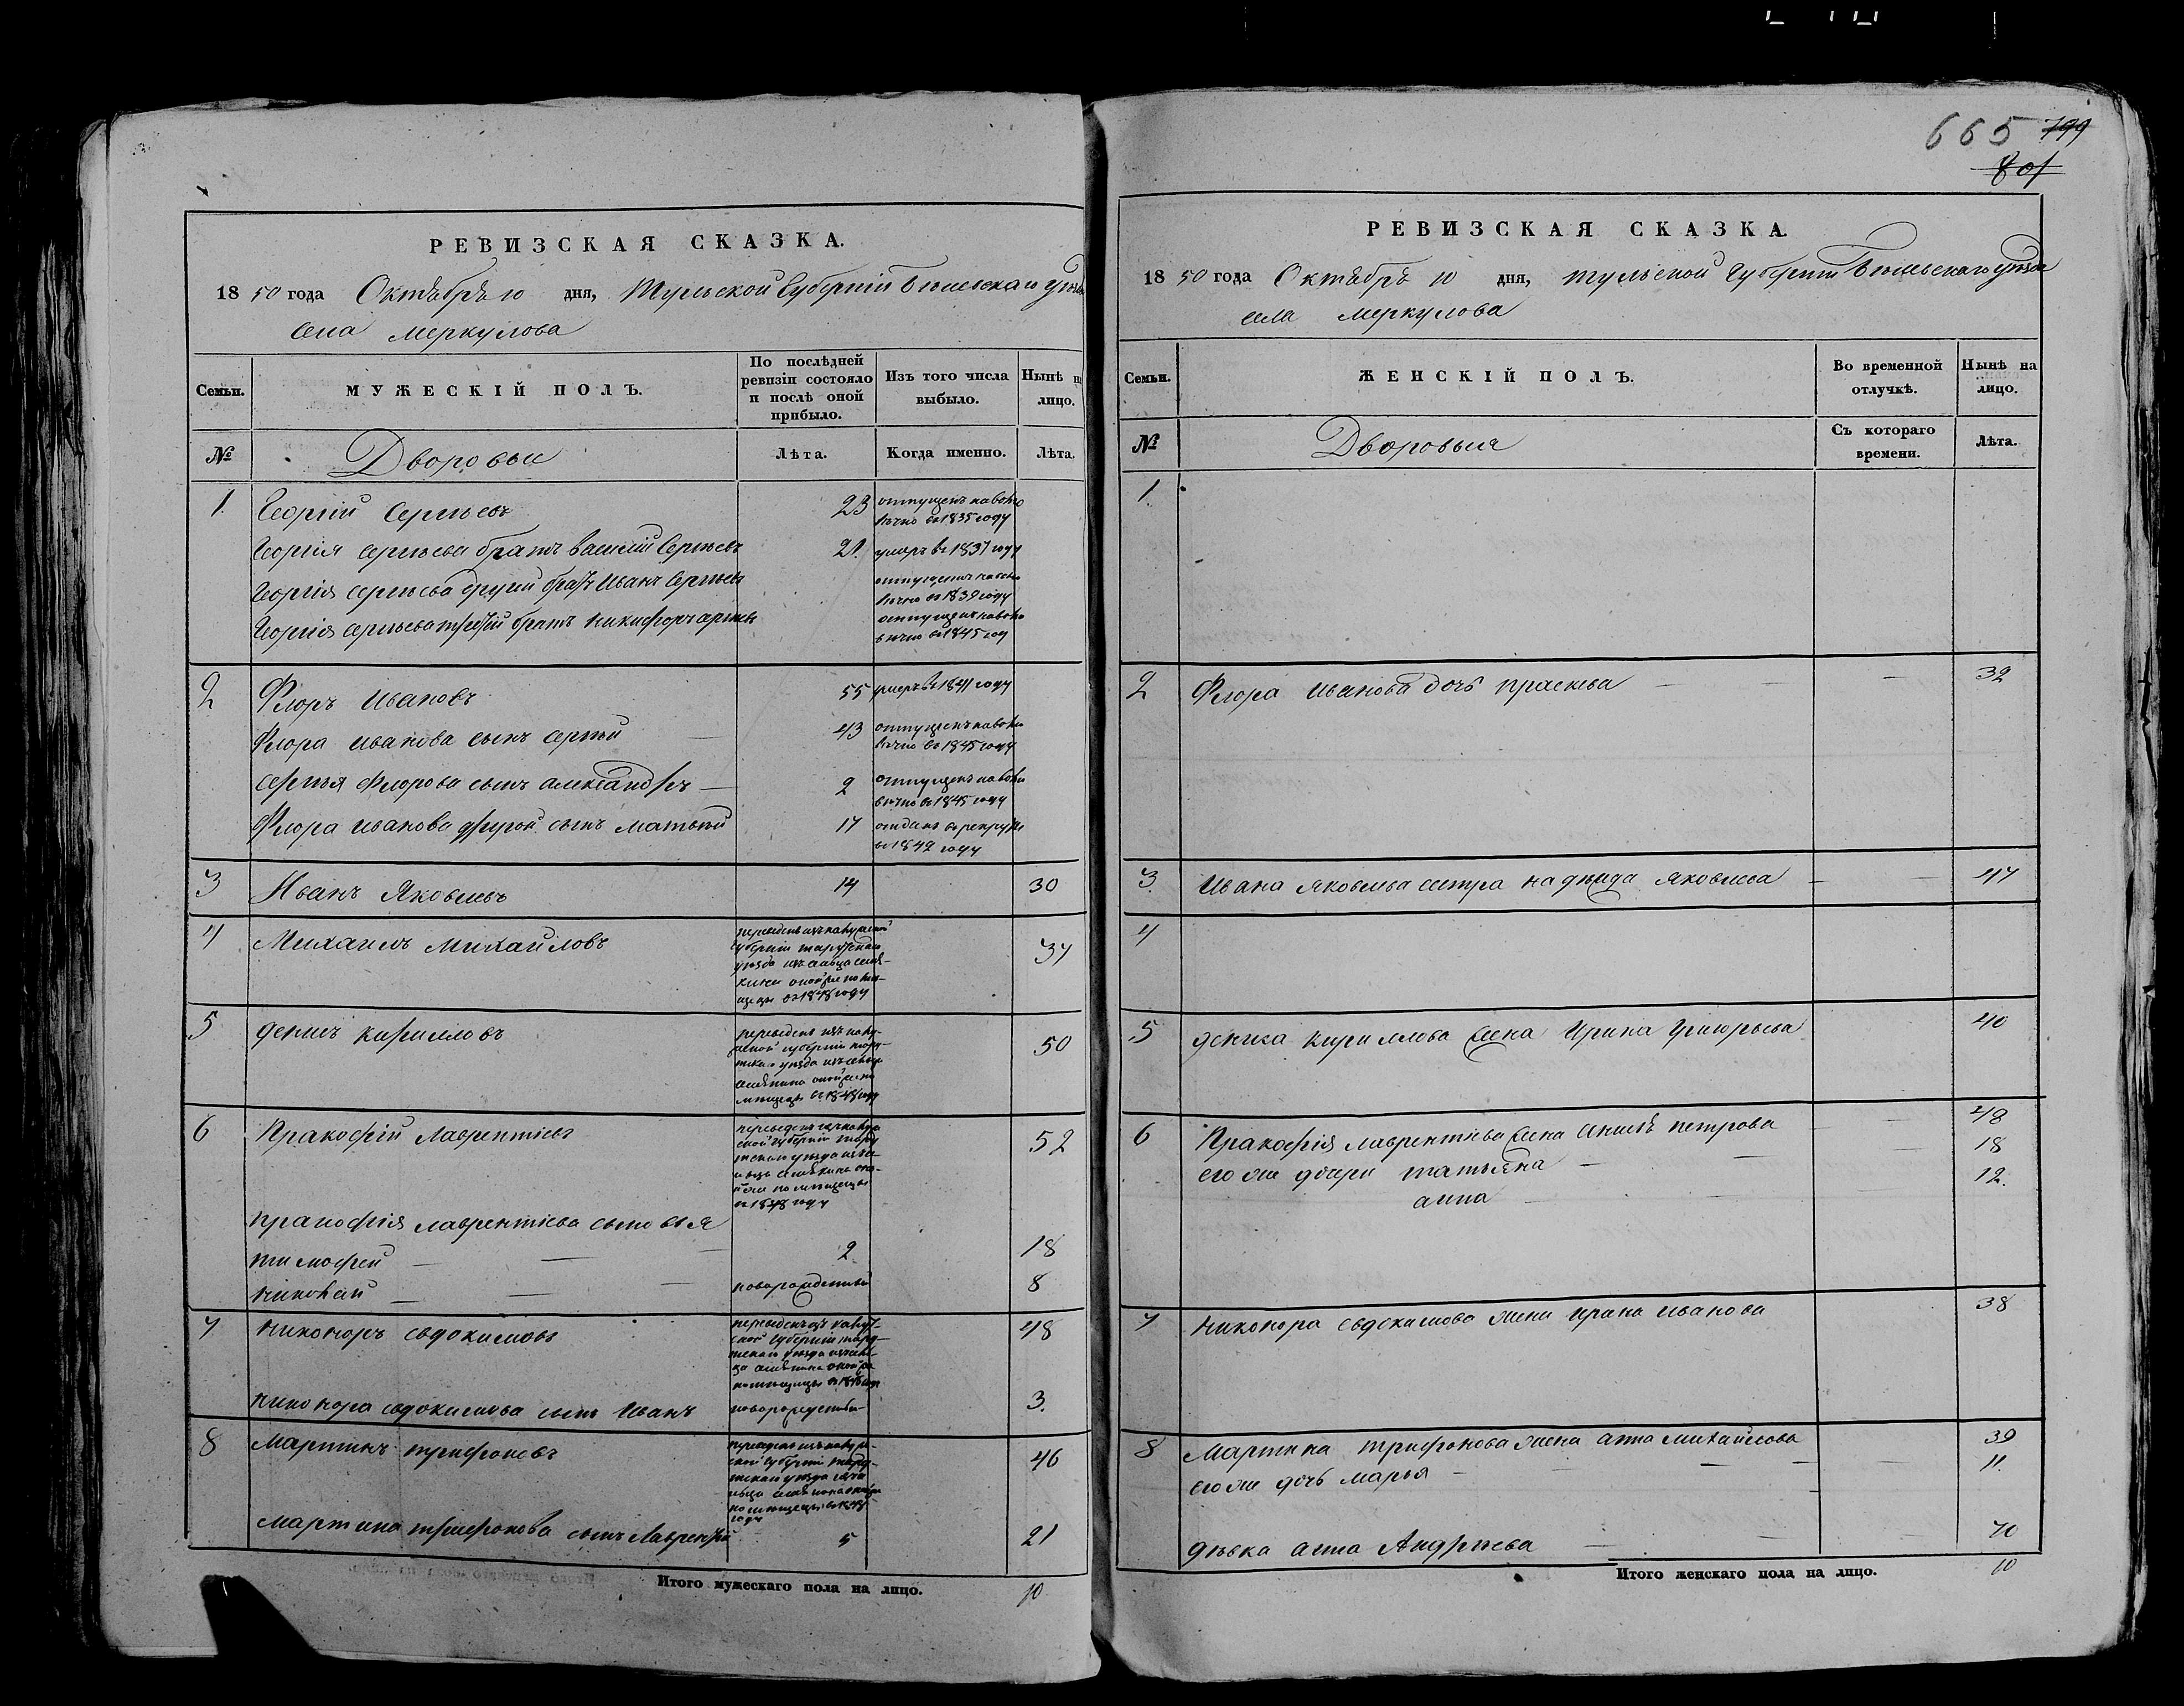 665 799
801
РЕВИЗСКАЯ СКАЗКА.
1850 года Октѣбрѣ 10 дня, Тульской Губерніи Бѣлевскаго уѣзда
Села Меркулова
Семьи.
МУЖЕСКІЙ ПОЛЪ.
По послѣдней ревизіи состояло и послѣ оной прибыло.
Изъ того числа выбыло.
Нынѣ на лицо.
№
Дворовыи
Лѣта.
Когда именно.
Лѣта.
1. Георгій Сергѣевъ 23 отпущенъ на волю
вѣчно въ 1835 году
Георгія Сергѣева братъ Василій Сергѣевъ 21. умеръ въ 1837 году
Георгія Сергѣева другий братъ Иванъ Сергѣевъ отпущенъ на волю
вѣчно въ 1839 году
Георгія Сергѣева третій братъ Никифоръ Сергѣевъ отпущенъ на волю
вѣчно въ 1845 году
2 Флоръ Ивановъ 55 умеръ въ 1841 году
Флора Иванова сынъ Сергѣй 43 отпущенъ на волю
вѣчно въ 1845 году
Сергѣя Флорова сынъ Александръ — 2 отпущенъ на волю
вѣчно въ 1845 году
Флора Иванова другой сынъ Матвѣй 17 отданъ в рекруты
въ 1842 году
3 Иванъ Яковлевъ 14 30
4 Михаилъ Михайловъ переведенъ изъ Калужской
губерніи Тарускаго
уѣзда изъ сельца
въ 1848 году 34
5 Денисъ Кириловъ переведенъ изъ Калу-
жской губерніи Тару-
скаго уѣзда изъ сельца
въ 1848 году 50
6 Пракофій Лаврентіевъ переведенъ изъ Калуж
ской губерніи Тару
скаго уѣзда изъ се
льца
помѣщицы
въ 1848 году 52
Пракофія Лаврентіева сыновья
Тимофей — — — 2 18
Николай — — — новорожденный 8
7 Никоноръ Евдокимовъ переведенъ изъ Калуж-
ской губерніи Тару-
скаго уѣзда изъ сель-
ца
помѣщицы въ 1848 году 48
Никонора Евдокимова сынъ Иванъ новорожденный 3.
8 Мартинъ Трифоновъ переведенъ изъ Калуж-
ской губерніи Тару-
скаго уѣзда изъ се
льца
помѣщицы въ 1848
году 46
Мартина Трифонова сынъ Лаврентій 5 21
Итого мужескаго пола на лицо. 10
РЕВИЗСКАЯ СКАЗКА.
1850 года Октѣбрѣ 10 дня, Тульской Губерніи Бѣлевскаго уѣзда
села Меркулова
Семьи.
ЖЕНСКІЙ ПОЛЪ.
Во временной отлучкѣ.
Нынѣ на лицо.
№
Дворовыя
Съ котораго времени.
Лѣта.
1.
2 Флора Иванова дочь Прасковя — — — 32
3. Ивана Яковлева сестра Надѣжда Яковлева — — 47
4
5 Дениса Кирилова жена Ирина Григорьева 40
6 Пракофія Лаврентіева жена Анисья Петрова — — 48
его же дочери Татьяна — — — 18
Анна — — 12.
7 Никонора Евдокимова жена Ирина Иванова 38
8 Мартина Трифонова жена Анна Михайлова 39
его же дочь Марья — — — — 11.
дѣвка Анна Андрѣева — — — 70
Итого женскаго пола на лицо. 10